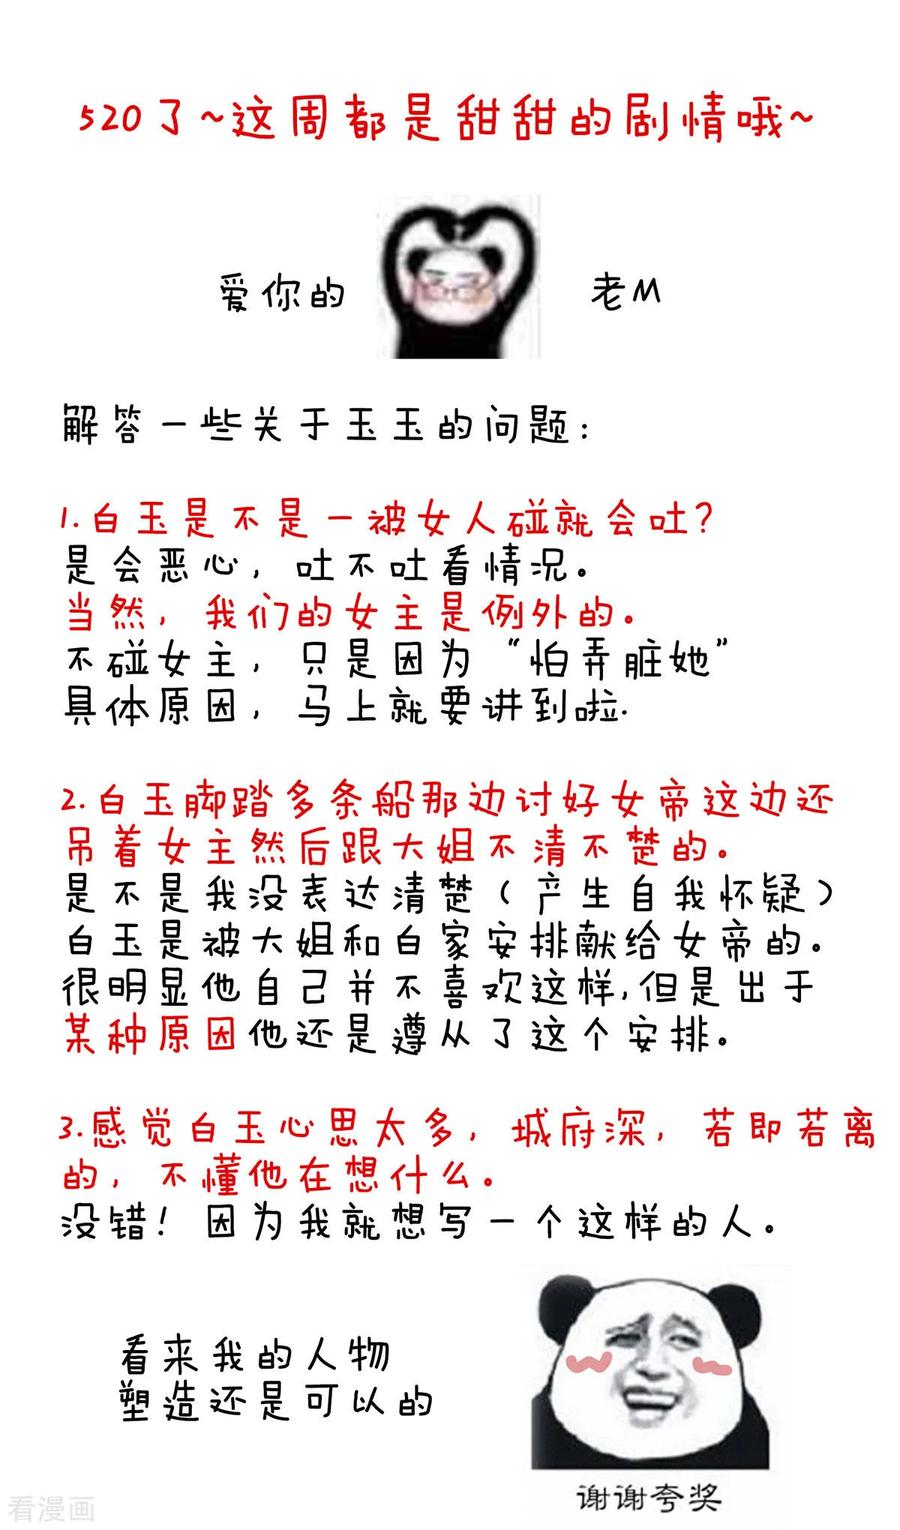 520了~这周都是甜甜的剧情哦~
爱你的 老M
解答一些关于玉玉的问题：
1.白玉是不是一被女人碰就会吐？
是会恶心，吐不吐看情况。
当然，我们的女主是例外的。
不碰女主，只是因为“怕弄脏她”
具体原因，马上就要讲到啦.
2.白玉脚踏多条船那边讨好女帝这边还
吊着女主然后跟大姐不清不楚的。
是不是我没表达清楚（产生自我怀疑）
白玉是被大姐和白家安排献给女帝的。
很明显他自己并不喜欢这样,但是出于
某种原因他还是遵从了这个安排。
3.感觉白玉心思太多，城府深，若即若离
的，不懂他在想什么。
没错！因为我就想写一个这样的人。
看来我的人物
塑造还是可以的
谢谢夸奖
看漫画